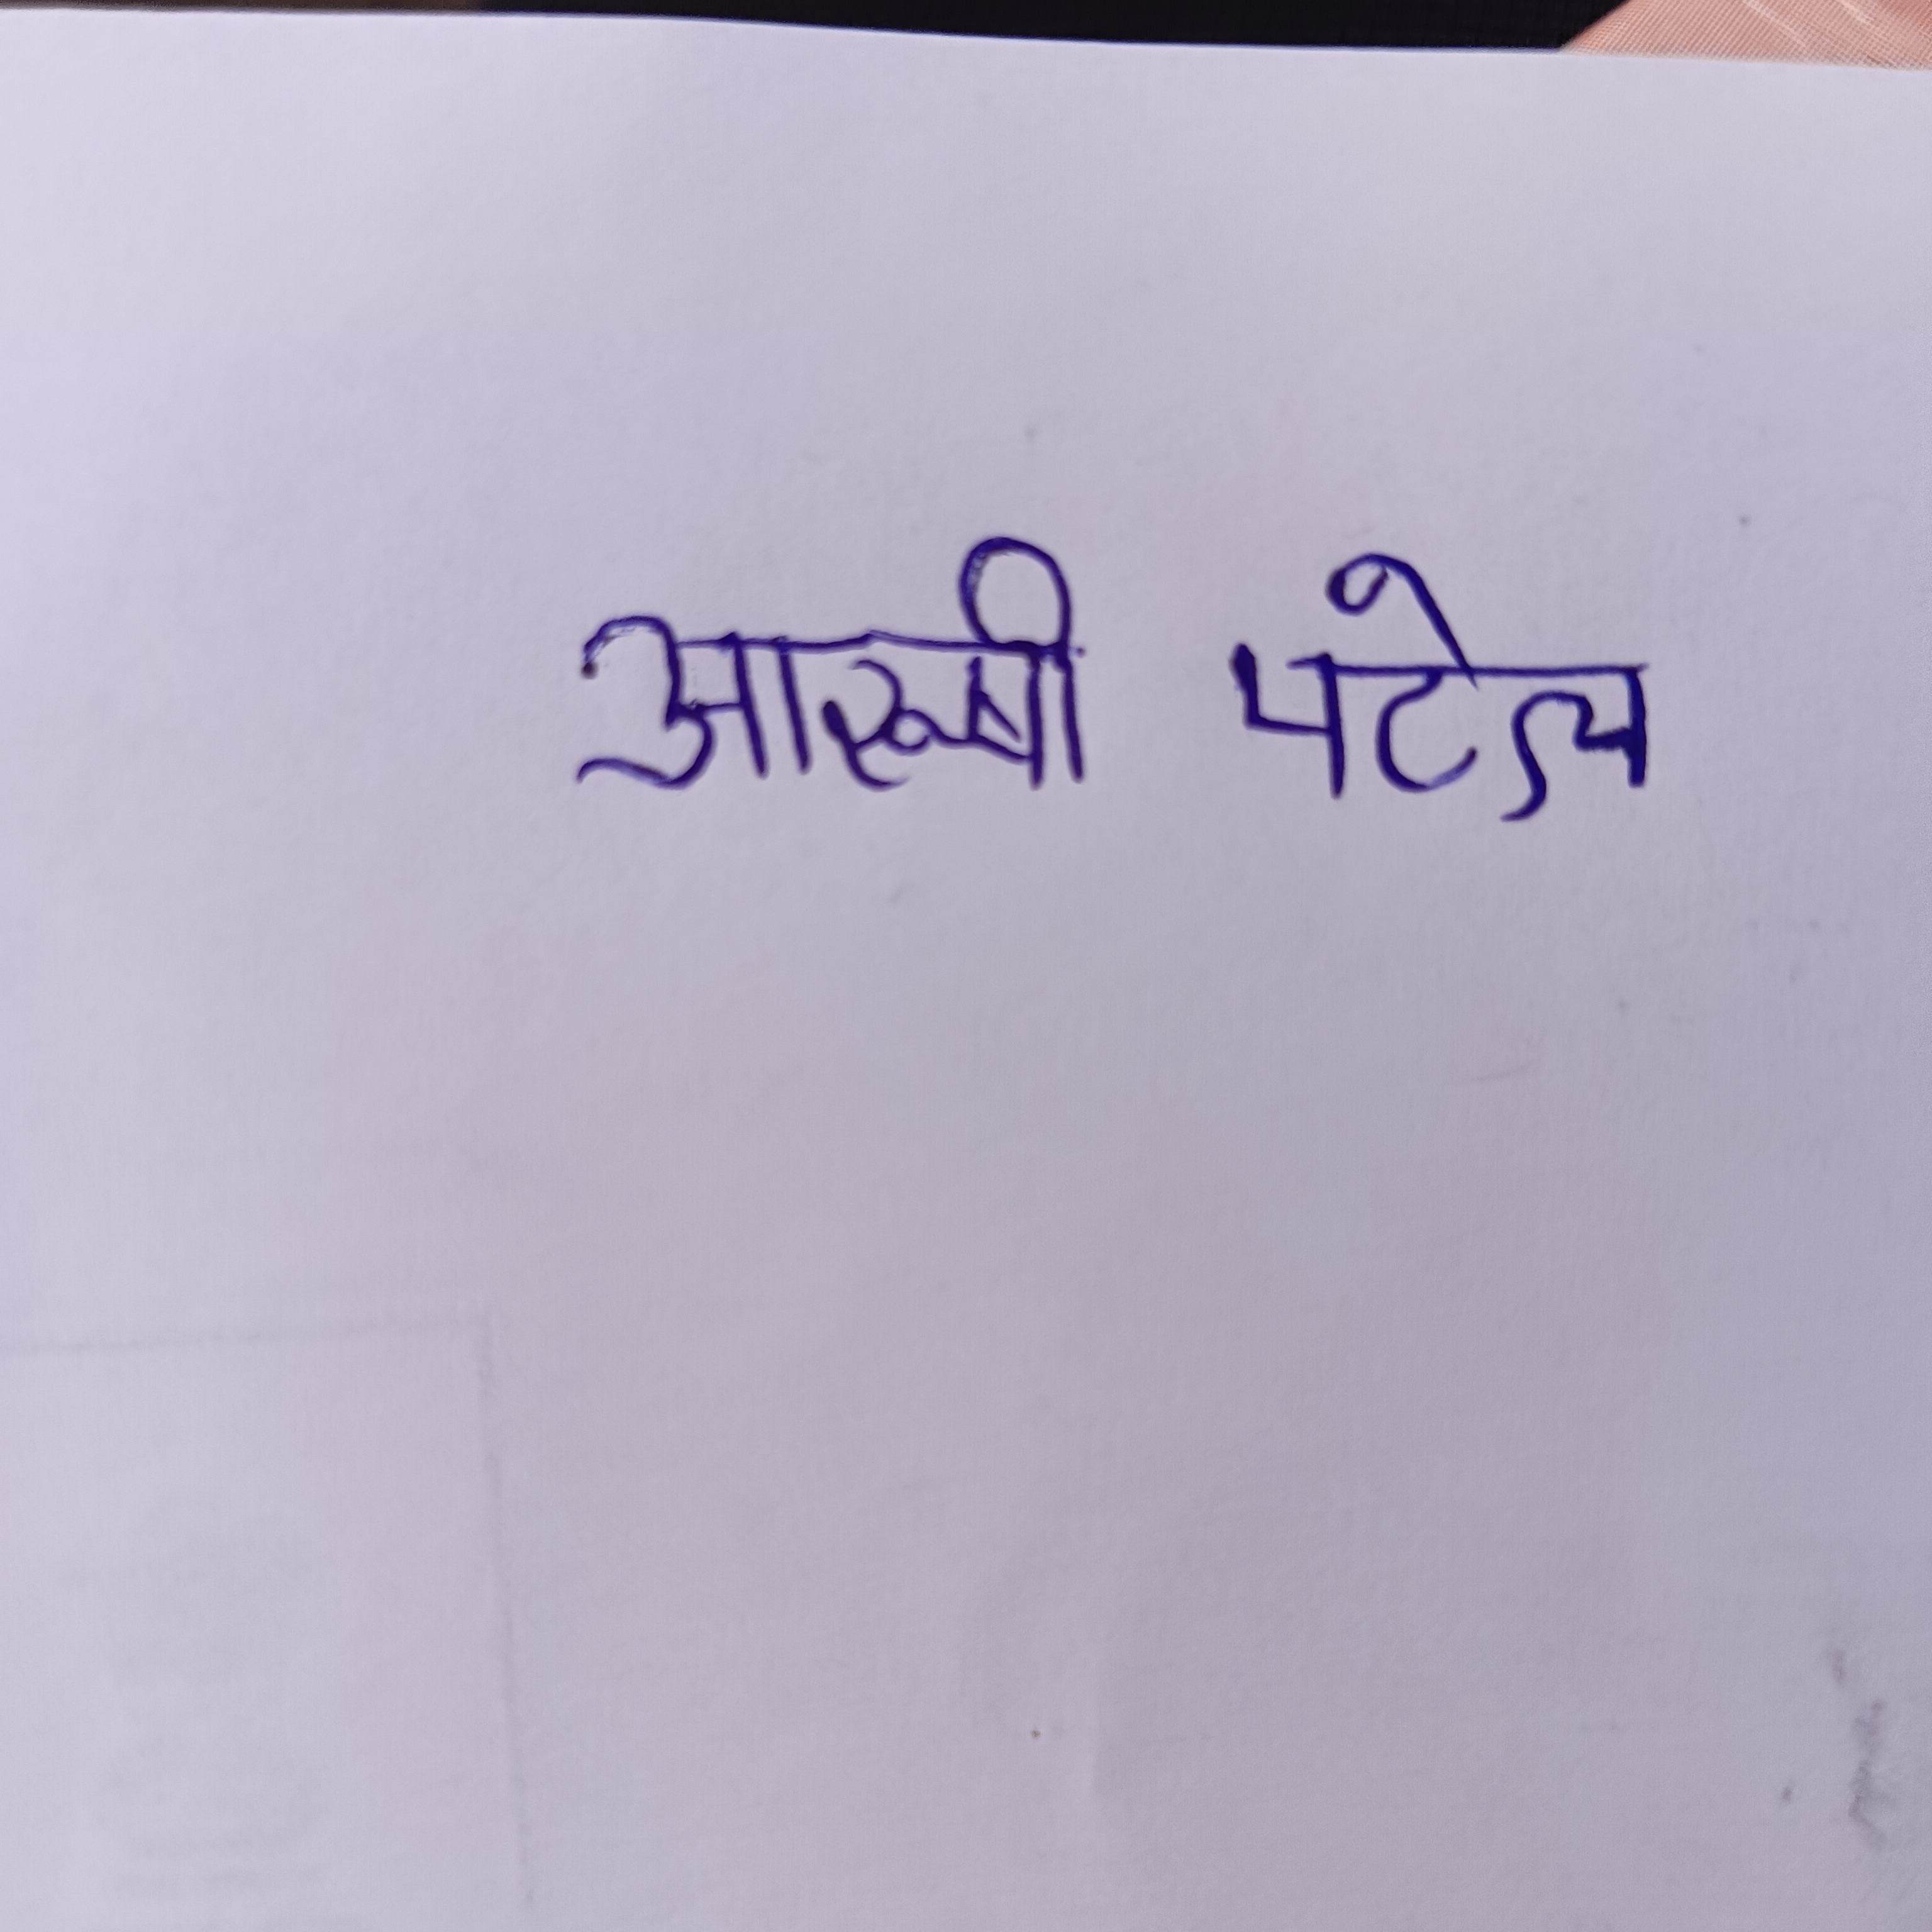 आरूषी पटेल